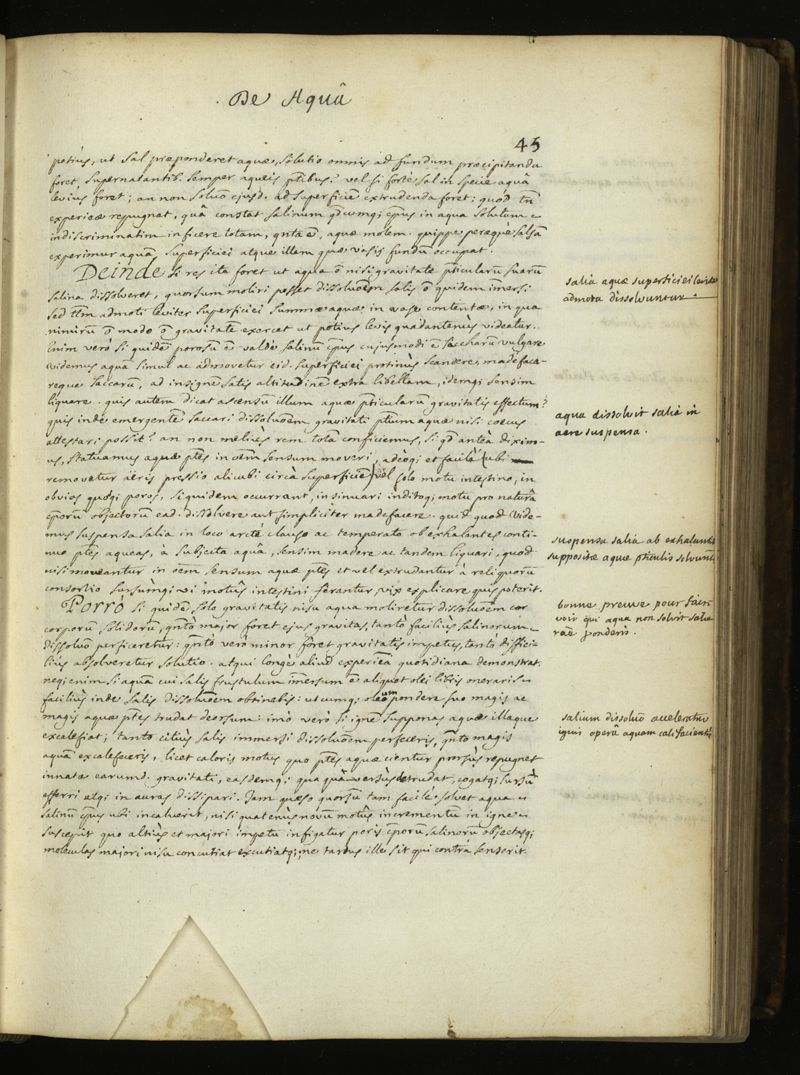 De Aquâ
45
potiùs, ut sal præponderet aquæ, solutio omnis ad fundum præcipitanda
foret, supernatantib. semper aqueis ptibus: vel si fortè sal in specie aquâ
levius foret; an non soluō ejusd. ad superficiē extrudenda foret: quod tn̄
repugnet, quâ constat salinum in aqua solutum
indiscriminatim inficere totam, qnta ē, aquæ molem. quippe peræquè salsā
experimur aquam, superficiei atque illam quæ vasis fundū occupat.
Deinde si res ita foret ut aqua ō nisi gravitate pticularū suarū
salina dissolveret, quorsum moliri posset dissoluōem salis ō quidem im̄ersi
sed tm̄ admoti leviter superficiei summæ aquæ in vase contentæ, in qua
nimirū ō modo ō gravitate exercet ut potius levis quadantenùs videatur.
Enim verò si quidem porosū ē valdè salinū cujusmodi ē saccharū vulgare
videmus aquā simul ac admovetur eid. superficiei protinùs scandere, madeface-
reque saccarū, ad insignē salis altitudinē extra libellam, idemqi sensim
liquare. quis autem dicat ascensū illum aquæ pticularū gravitatis effectum?
quis inde emergentē saccari dissoluōem gravitati ptium aquæ nisi cœcus
attestari possit? an non meliùs rem totā conficiemus, si qd anteà dixim-
us, statuamus aquæ ptes in oēm sensum moveri, adeoqi et facilè ubi
removetur aëris pressio alicubi circà superficiē, vel solo motu intestino, in
obvios quoqi poros, siquidem occurrant, insinuari inditoqi motu pro naturâ
objectorū ead. dissolvere aut simpliciter madefacere. quid quod vide-
mus suspensa salia in loco arctè clauso ac temperato ob exhalantes conti-
nuo ptes aqueas, à subjecta aquâ, sensim madere ac tandem liquari, quod
nisi moveantur in oēm sensum aquæ ptes et vel extrudantur à reliquorū
consortio sursùmqi vi motûs intestini ferantur, vix explicare quis poterit.
Porrò si quidē solo gravitatis nisu aqua moliretur dissoluōem cor
corporum solidorū, qntò major foret ejus gravitas, tantò faciliùs salinorum
dissoluō perficeretur: qntò verò minor foret gravitatis impetus, tantò diffici-
liùs absolveretur solutio. atqui longè aliud experiēa quotidiana demonstrat.
neqi enim si aquā cui salis frustulum im̄ersum ē aliquot olei libris oneraris
faciliùs inde salis dissoluōem obtinebis: utcumqi oleum pondere suo magis ac
magis aquæ ptes trudat deorsum: imò verò si ignē supponas aquæ illaque
excalefiat; tanto citiùs salis immersi dissoluōem perfeceris, qntò magis
aquā excalefeceris, licet caloris motus quo ptes aquæ cientur prorsùs repugnet
innatæ earumd. gravitati, easdemqi quaquà versùs detrudat, cogatqi sursū
efferri atqi in auras dissipari. Iam quæso quorsū tam facilè solvet aqua
salinū ubi incaluerit, nisi quatenùs novū motûs incrementū in igne
suscepit quo altiùs et majori impetu infigatur poris salinorū objectasqi
moleculas majori nisu concutiat excutiatqi; ne tardus ille sit qui contrà senserit.
salia aquæ superficiei leviter
admota dissolvuntur.
aqua dissolvit salia in
aere suspensa.
suspensa salia ab exhalantib
suppositæ aquæ pticulis solvunt
bonne preuve pour faire
voir qui aqua non solvit salia
raōe ponderis.
salium dissoluō acceleratur
ignis operâ aquam calefacientis